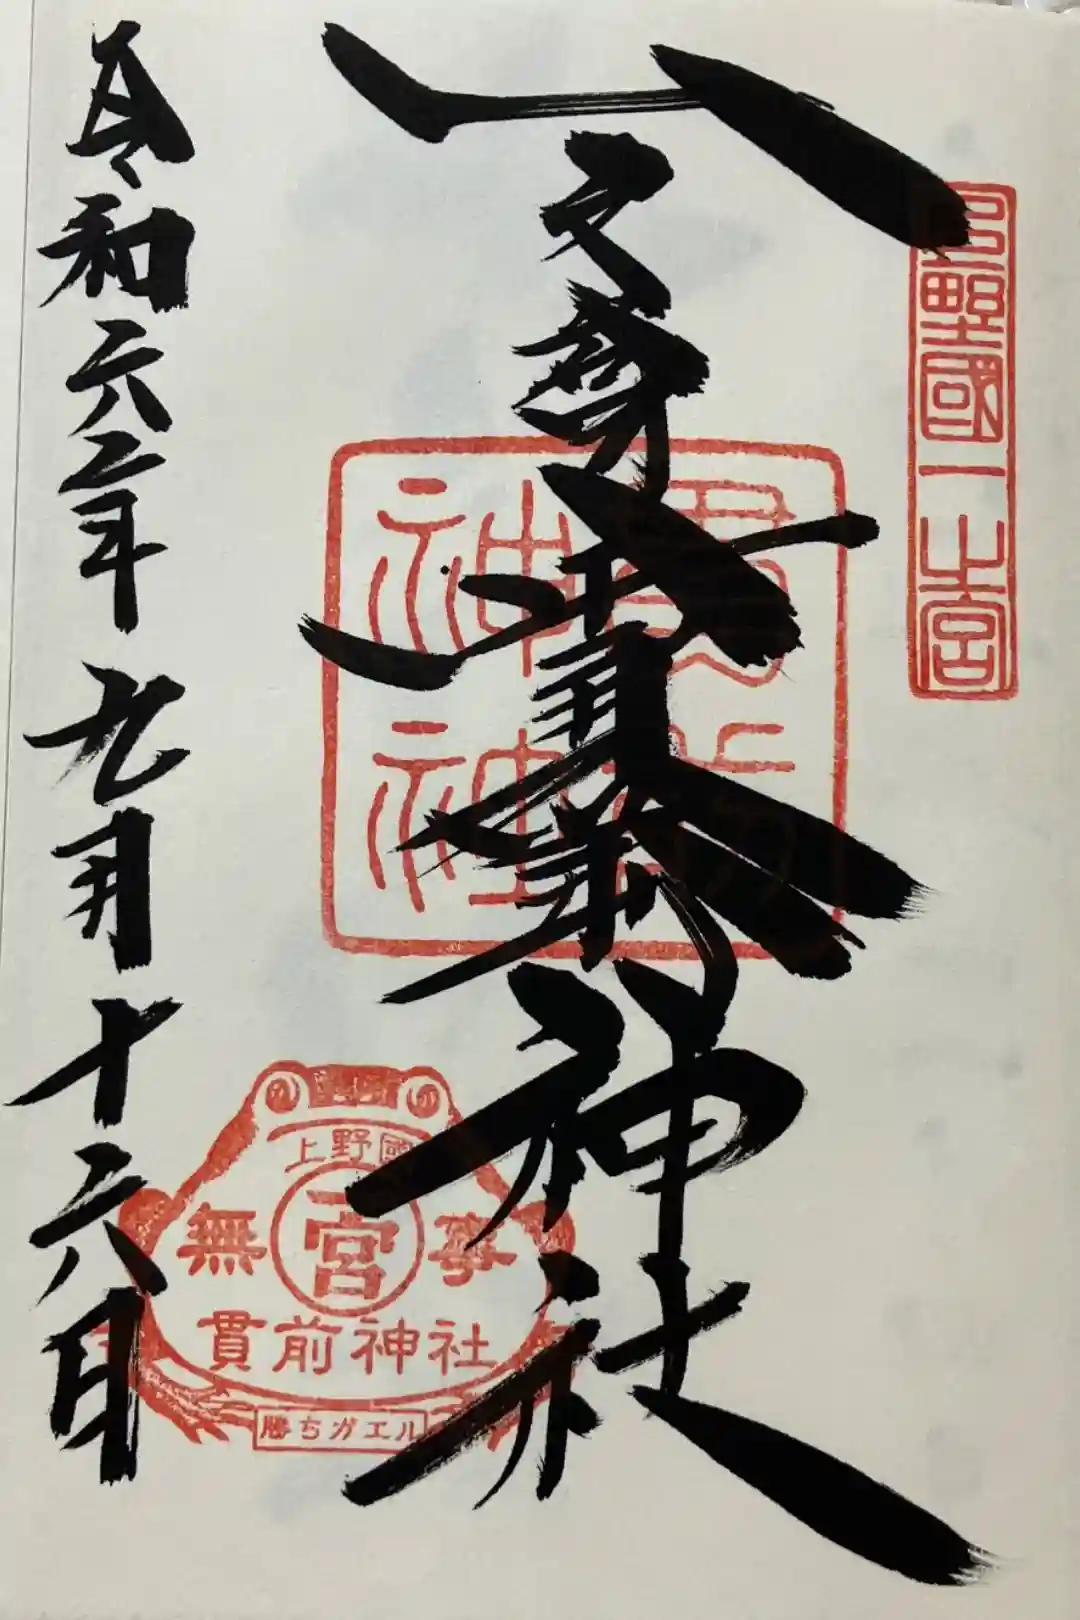 上野國一之宮
一之宮貫前神社
令和六年九月十六日
上野國
一宮
無事
貫前神社
勝ちガエル